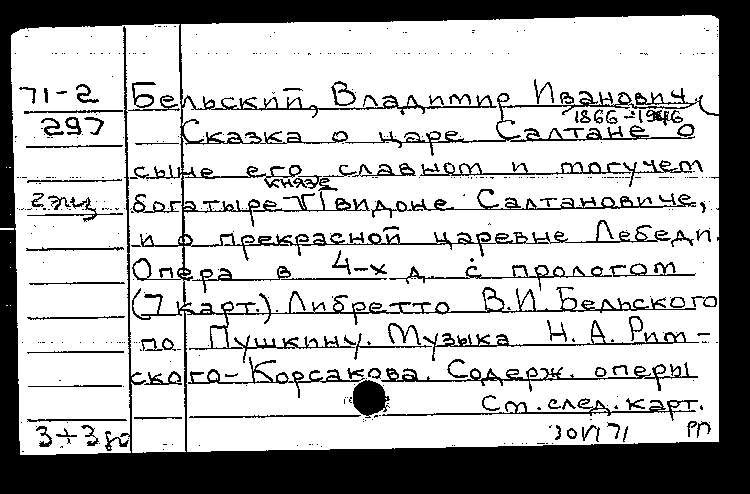 71-2 Бельский, Владимир Иванович,
1866-1946
297 Сказка о царе Салтане о
сыне его славном и могучем
князе
2 экз богатыре Гвидоне Салтановиче,
и о прекрасной царевне Лебеди.
Опера в 4-х д. с прологом
(7 карт.). Либретто В.И. Бельского
по Пушкину. Музыка Н. А. Рим-
ского-Корсакова. Содерж. оперы
См. след. карт.
3+3 30VI71 РП